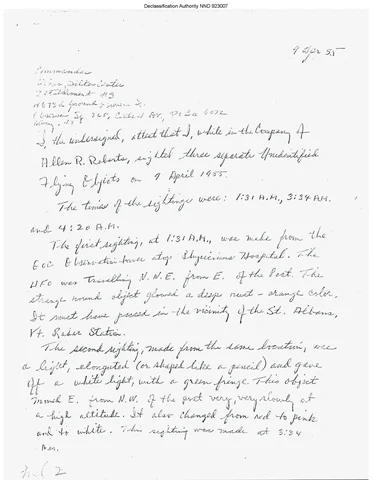 Declassification Authority NND 923007
9 Apr 55
Commander
Filter Center
Detachment #3
Ground
I, the undersigned, attest that I, while in the Company of
Allen R. Roberts, sighted three separate Unidentified
Flying Objects on 9 April 1955.
The times of the sightings were: 1:31 A.M., 3:34 A.M.
and 4:20 A.M.
The first sighting, at 1:31 A.M., was made from the
GOC Observation tower atop Physicians Hospital. The
UFO was travelling N.N.E. from E. of the Post. The
strange round object glowed a deep rust-orange color.
It must have passed in the vicinity of the St. Albans,
Vt. Radar Station.
The second sighting, made from the same location, was
a light, elongated (or shaped like a pencil) and gave
off a white light, with a green fringe. This object
moved E. from N.W. of the post very, very slowly at
a high altitude. It also changed from red to pink
and to white. This sighting was made at 3:34
2